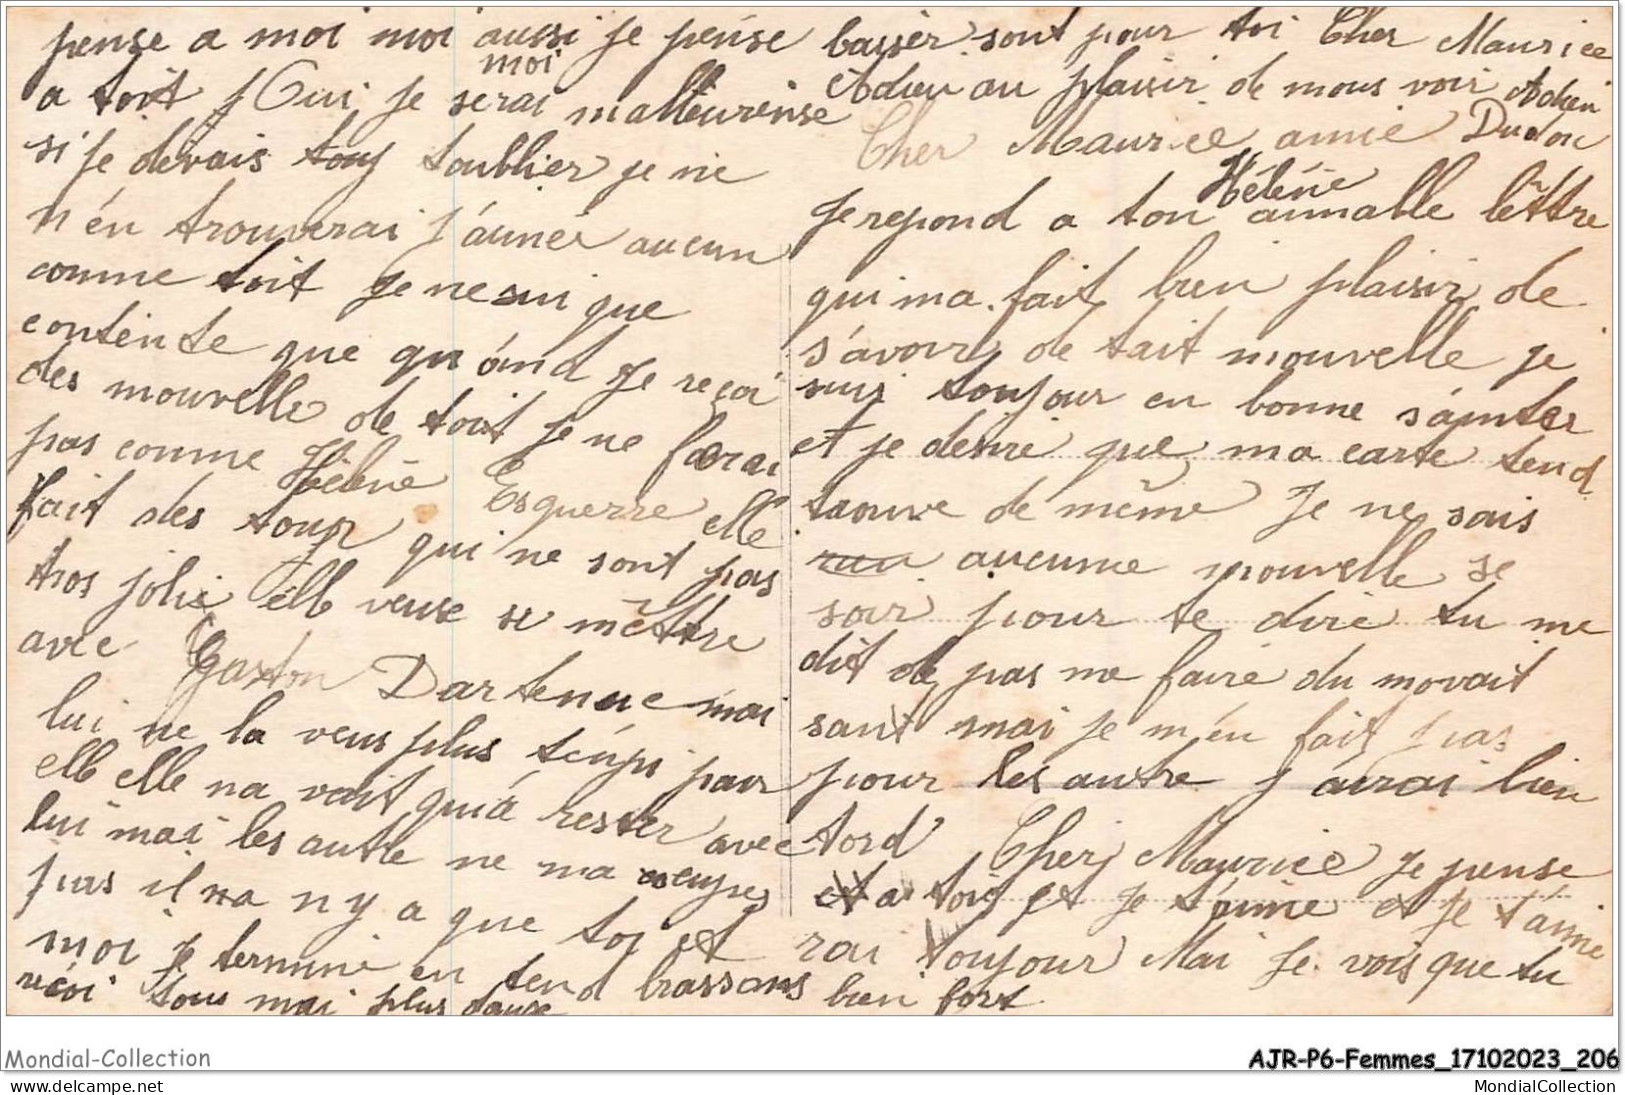 Cher Maurice amie
Je repond a ton aimable lèttre
qui ma fait bien plaisir de
s'avoir de tait nouvelle je
suis toujour en bonne s'ainter
et je desire que ma carte tend
trouve de même Je ne sais
aucune nouvelle se
soir pour te dire tu me
dit de pas me faire du movait
sant mai je m'en fait pas
pour les autre j'airai bien
tord Cher Maurice je pense
a toi et je t'aime et je t'aime
rai toujour Mai je vois que tu
pense a moi moi aussi je pense
a toit Oui je serai moi malleureuse
si je devais toublier je ne
n'én trouverai j'aimér aucun
comme toit Je ne sui que
contente que qu'and je reçoi
des nouvelle de toit je ne faerai
pas comme Hélène Esquerre elle
fait des tour qui ne sont pas
tros jolie elle veuse se mèttre
avec Gaston Dartenuc mai
lui ne la veus plus témpi pour
elle elle na vait qu'a rester avec
lui mai les autre ne ma
pas il na n y a que toi et
moi je termine en tend brassans bien fort
reçoi tous mai plus douse
basser sont pour toi Cher Maurice
Adieu au plaisir de nous voir Adieu
Hélène Dudon
Mondial-Collection
AJR-P6-Femmes_17102023_206
www.delcampe.net
MondialCollection